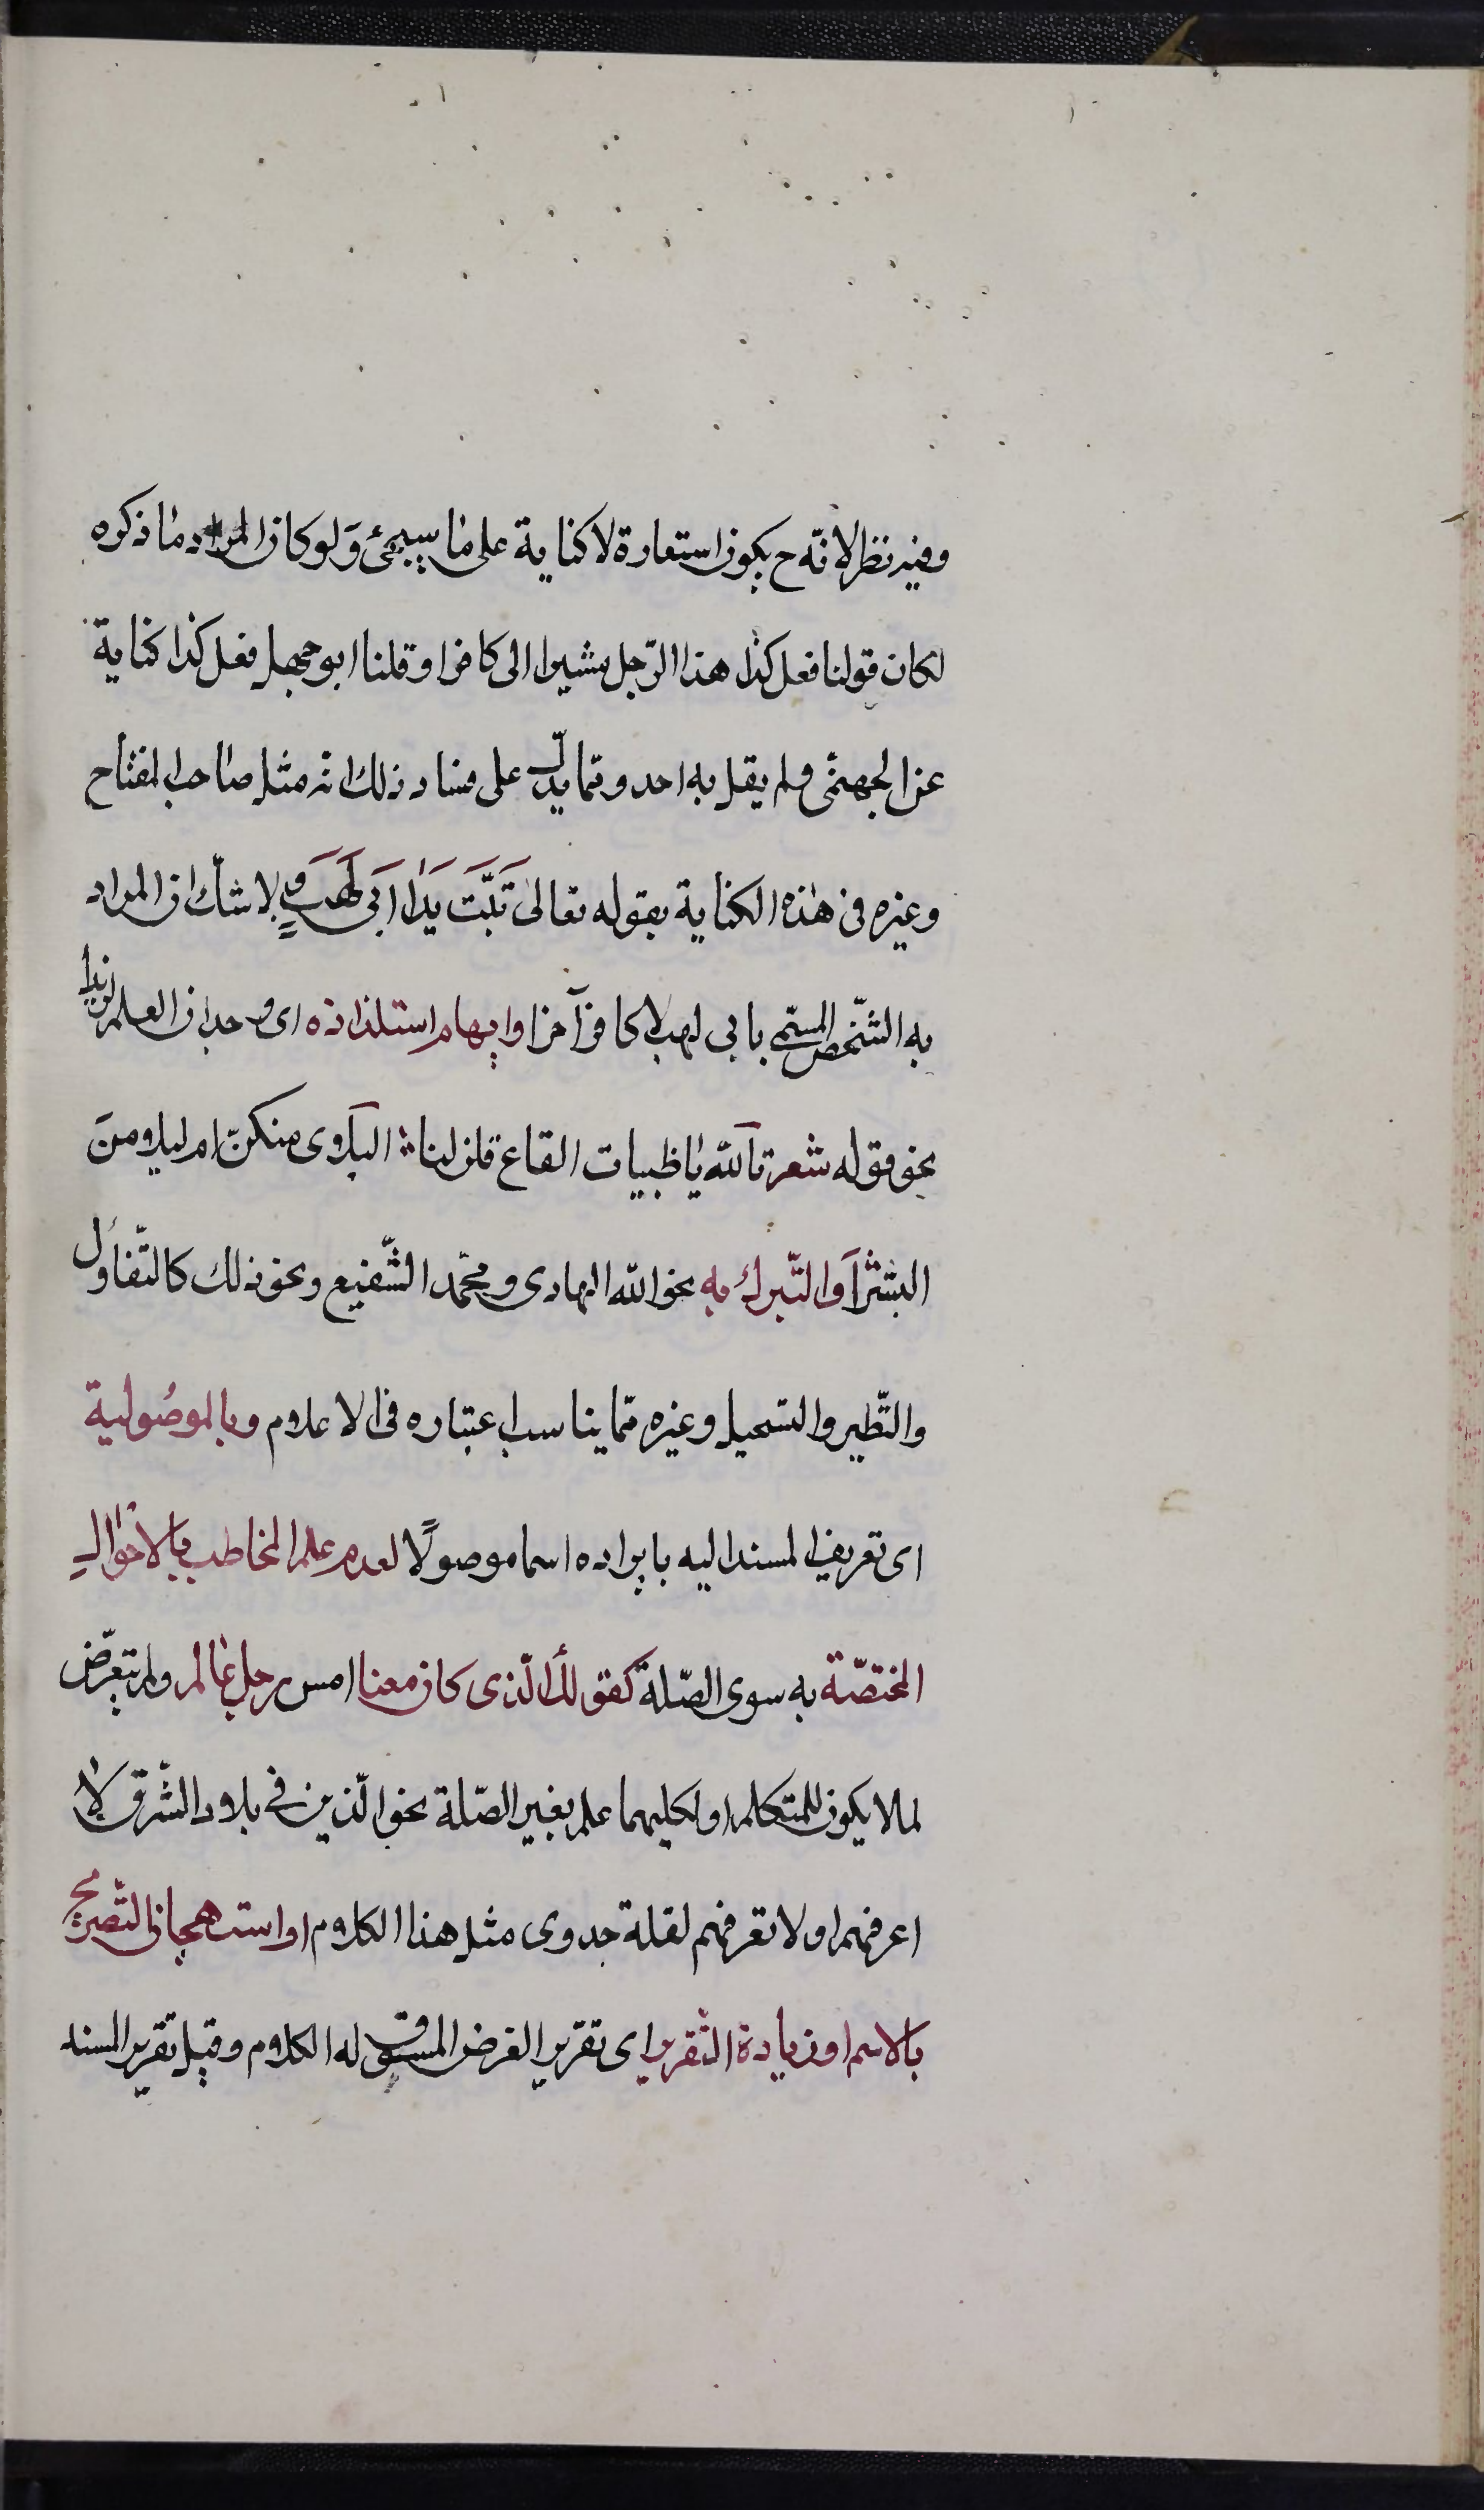 وفيه نظر لانّه ح يكون استعارة لا كناية على ما سيجئ وَلو كان المراد ما ذكره
لكان قولنا فعل كذا هذا الرّجل مشيرا الى كافر او قلنا ابو جهل فعل كذا كناية
عن الجهنمّى ولم يقل به احد وممّا يدلّ على فساد ذلك انّه مثل صاحب المفتاح
وغيره فى هذه الكناية بقوله تعالى تَبَّتَ يَدَا اَبَى لَهَبٍ وَ لا شك ان المراد
به الشّخص المسمّى بابى لهب لا كافر آخر او ايهام استلذاذه اى وجدان العلم لذيذا
نحو قوله شعر تاَللّه يا ظبيات القاع قلن لنا ؞ اليلاى منكنّ ام ليلى منَ
البشر اَو التّبرك به نحو اللّه الهادى ومحمّد الشّفيع ونحو ذلك كالتّفاول
والتّطير والتسجيل وغيره ممّا يناسب اعتباره فى الاعلام وبالموصُولية
اى تعريف المسند اليه بايراده اسما موصولًا لعدم علم المخاطب بالاحوال
المختصّة به سوى الصّلة كقولك الّذى كان معنا امس رجل عالم ولم يتعرّض
لما لا يكون للمتكلم او لكليهما علم بغير الصّلة نحو الّذين فى بلاد الشّرق لا
اعرفهم او لا نعرفهم لقلة جدوى مثل هذا الكلام او استهجان التّصريح
بالاسم او زيادة التّقرير اى تقرير الغرض المسوق له الكلام وقيل تقرير المسند